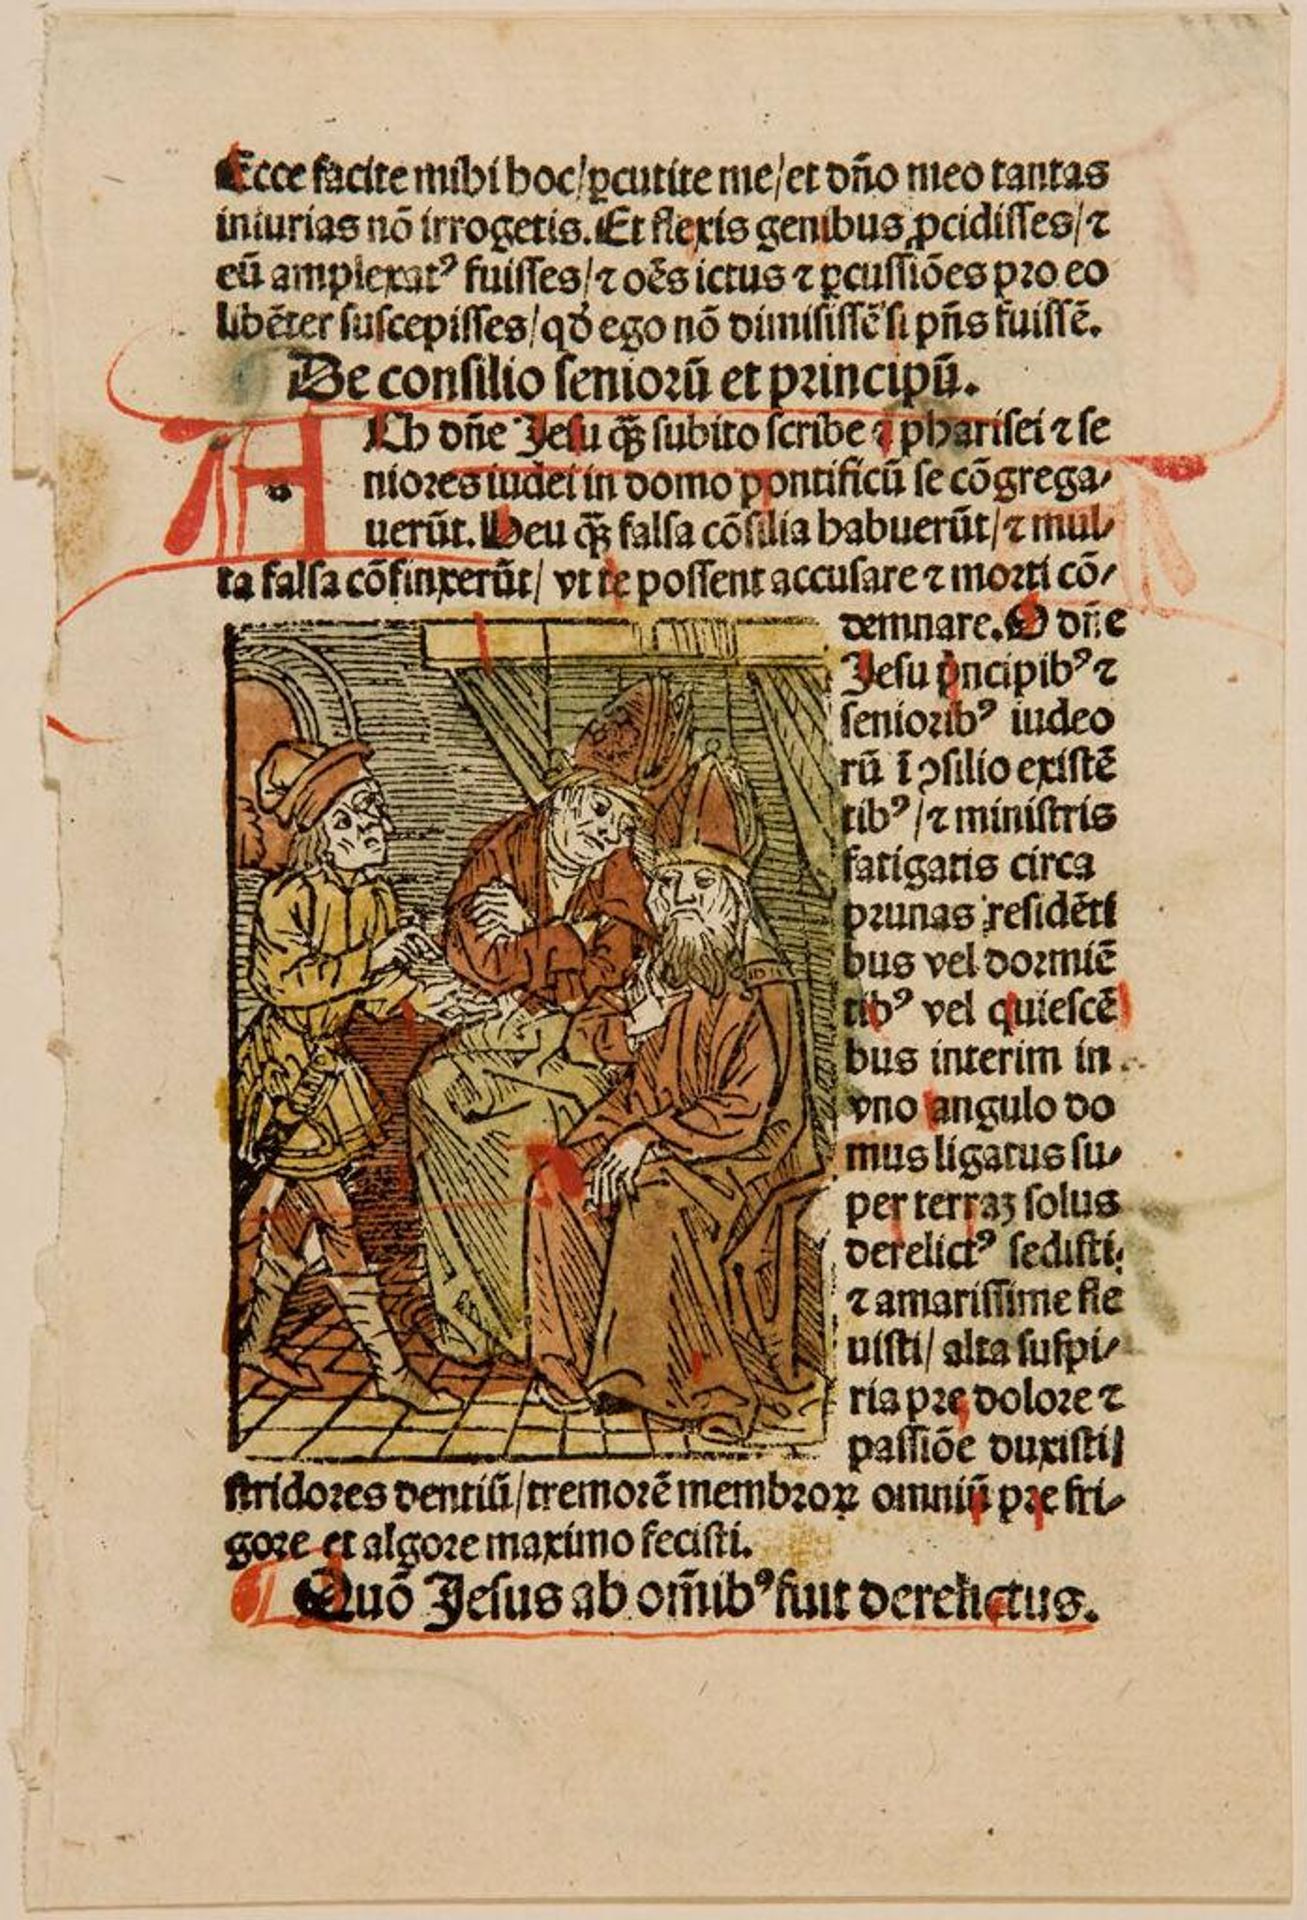 Ecce facite mihi hoc/ ꝑcutite me/ et dn̄o meo tantas
iniurias nō irrogetis. Et flexis genibus ꝓcidisses/ ⁊
eū amplexatꝰ fuisses/ ⁊ oēs ictus ⁊ ꝑcussiōes pro eo
libēter suscepisses/ qđ ego nō dimisissē si pn̄s fuissē.
De consilio seniorū et principū.
Ah dn̄e Jesu qꝫ subito scribe ⁊ pharisei ⁊ se
niores iudei in domo pontificū se cōgrega/
uerūt. Heu qꝫ falsa cōsilia habuerūt/ ⁊ mul/
ta falsa cōfinxerūt/ vt te possent accusare ⁊ morti cō/
demnare. O dn̄e
Jesu pncipibꝰ ⁊
senioribꝰ iudeo
rū ī ꝯsilio existē
tibꝰ/ ⁊ ministris
fatigatis circa
prunas residēti
bus vel dormiē
tibꝰ vel quiescē
bus interim in
vno angulo do
mus ligatus su/
per terraꝫ solus
derelictꝰ sedisti:
⁊ amarissime fle
uisti/ alta suspi/
ria pre dolore ⁊
passiōe duxisti/
stridores dentiū/ tremorē membroꝝ omniū pre fri/
gore et algore maximo fecisti.
Quō Jesus ab om̄ibꝰ fuit derelictus.